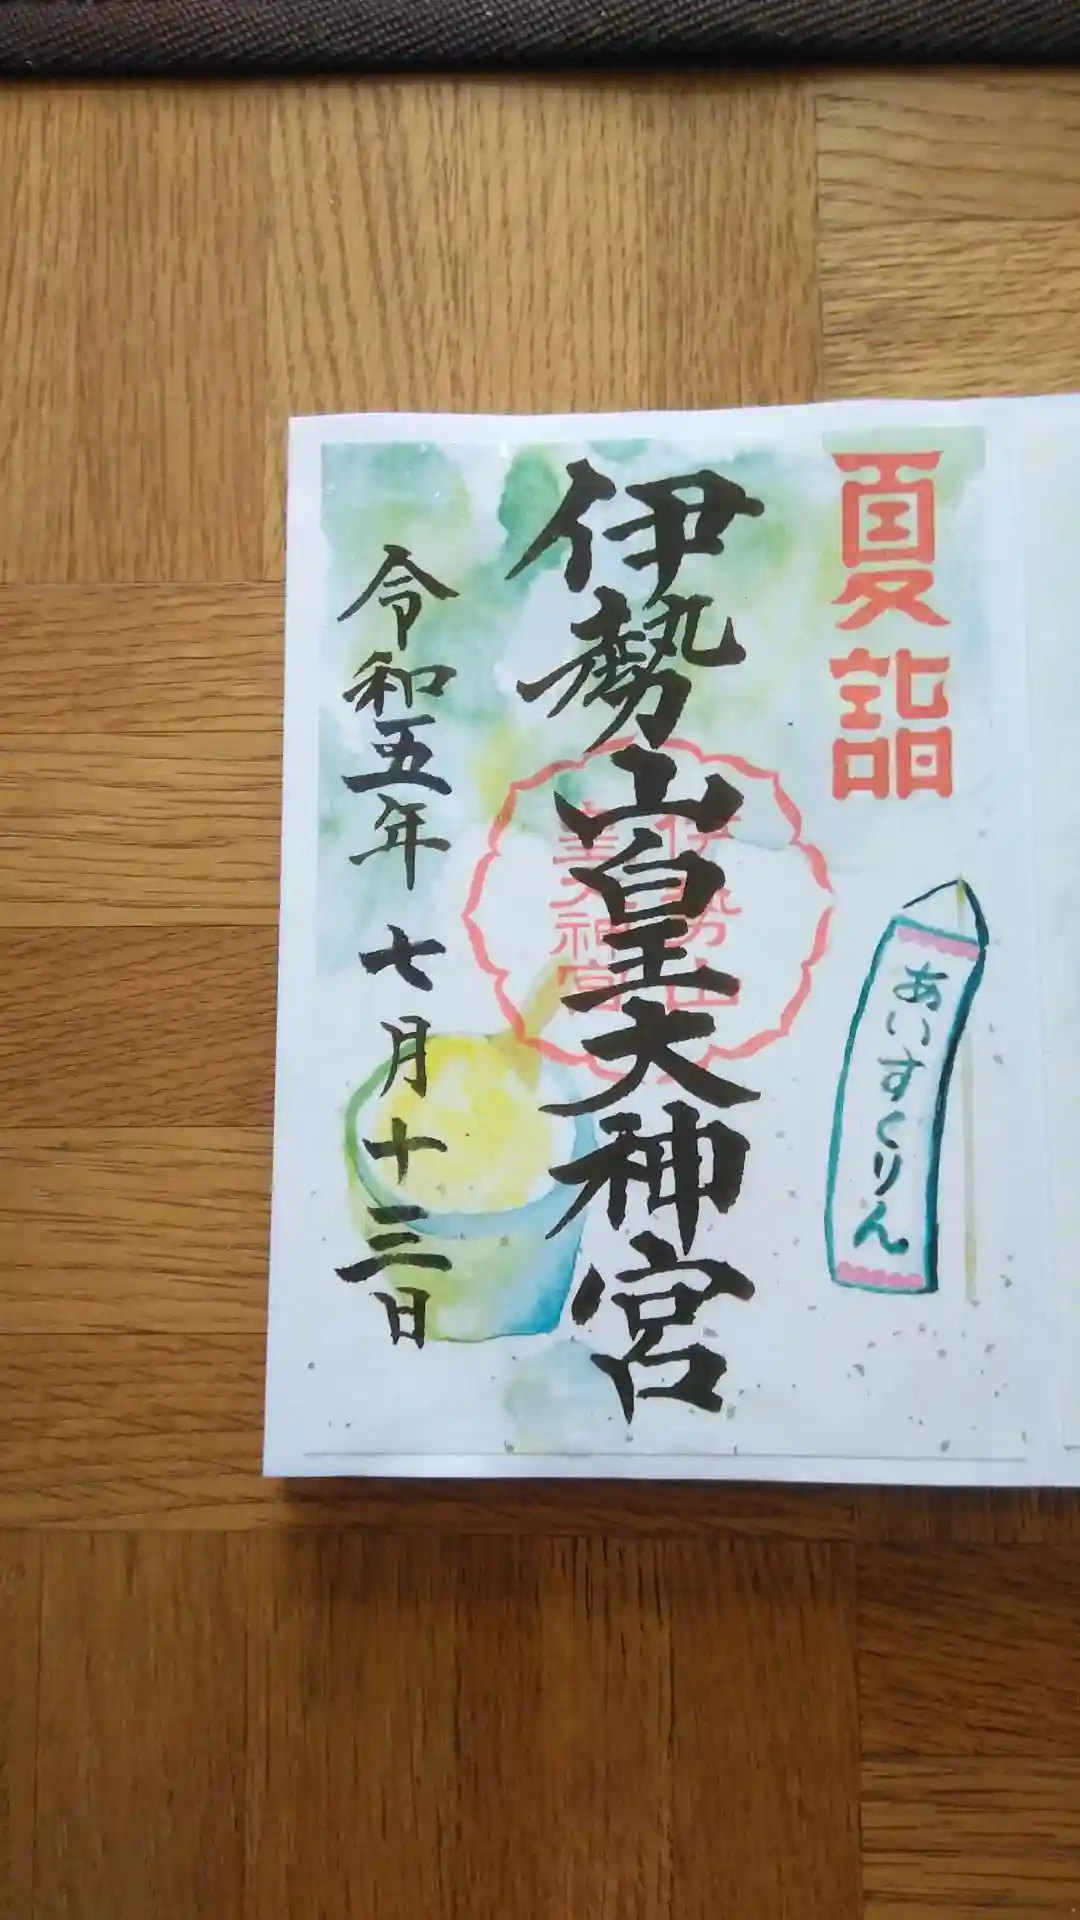 夏詣
あいすくりん
伊勢山皇大神宮
伊勢山
皇大神宮
令和五年 七月十三日